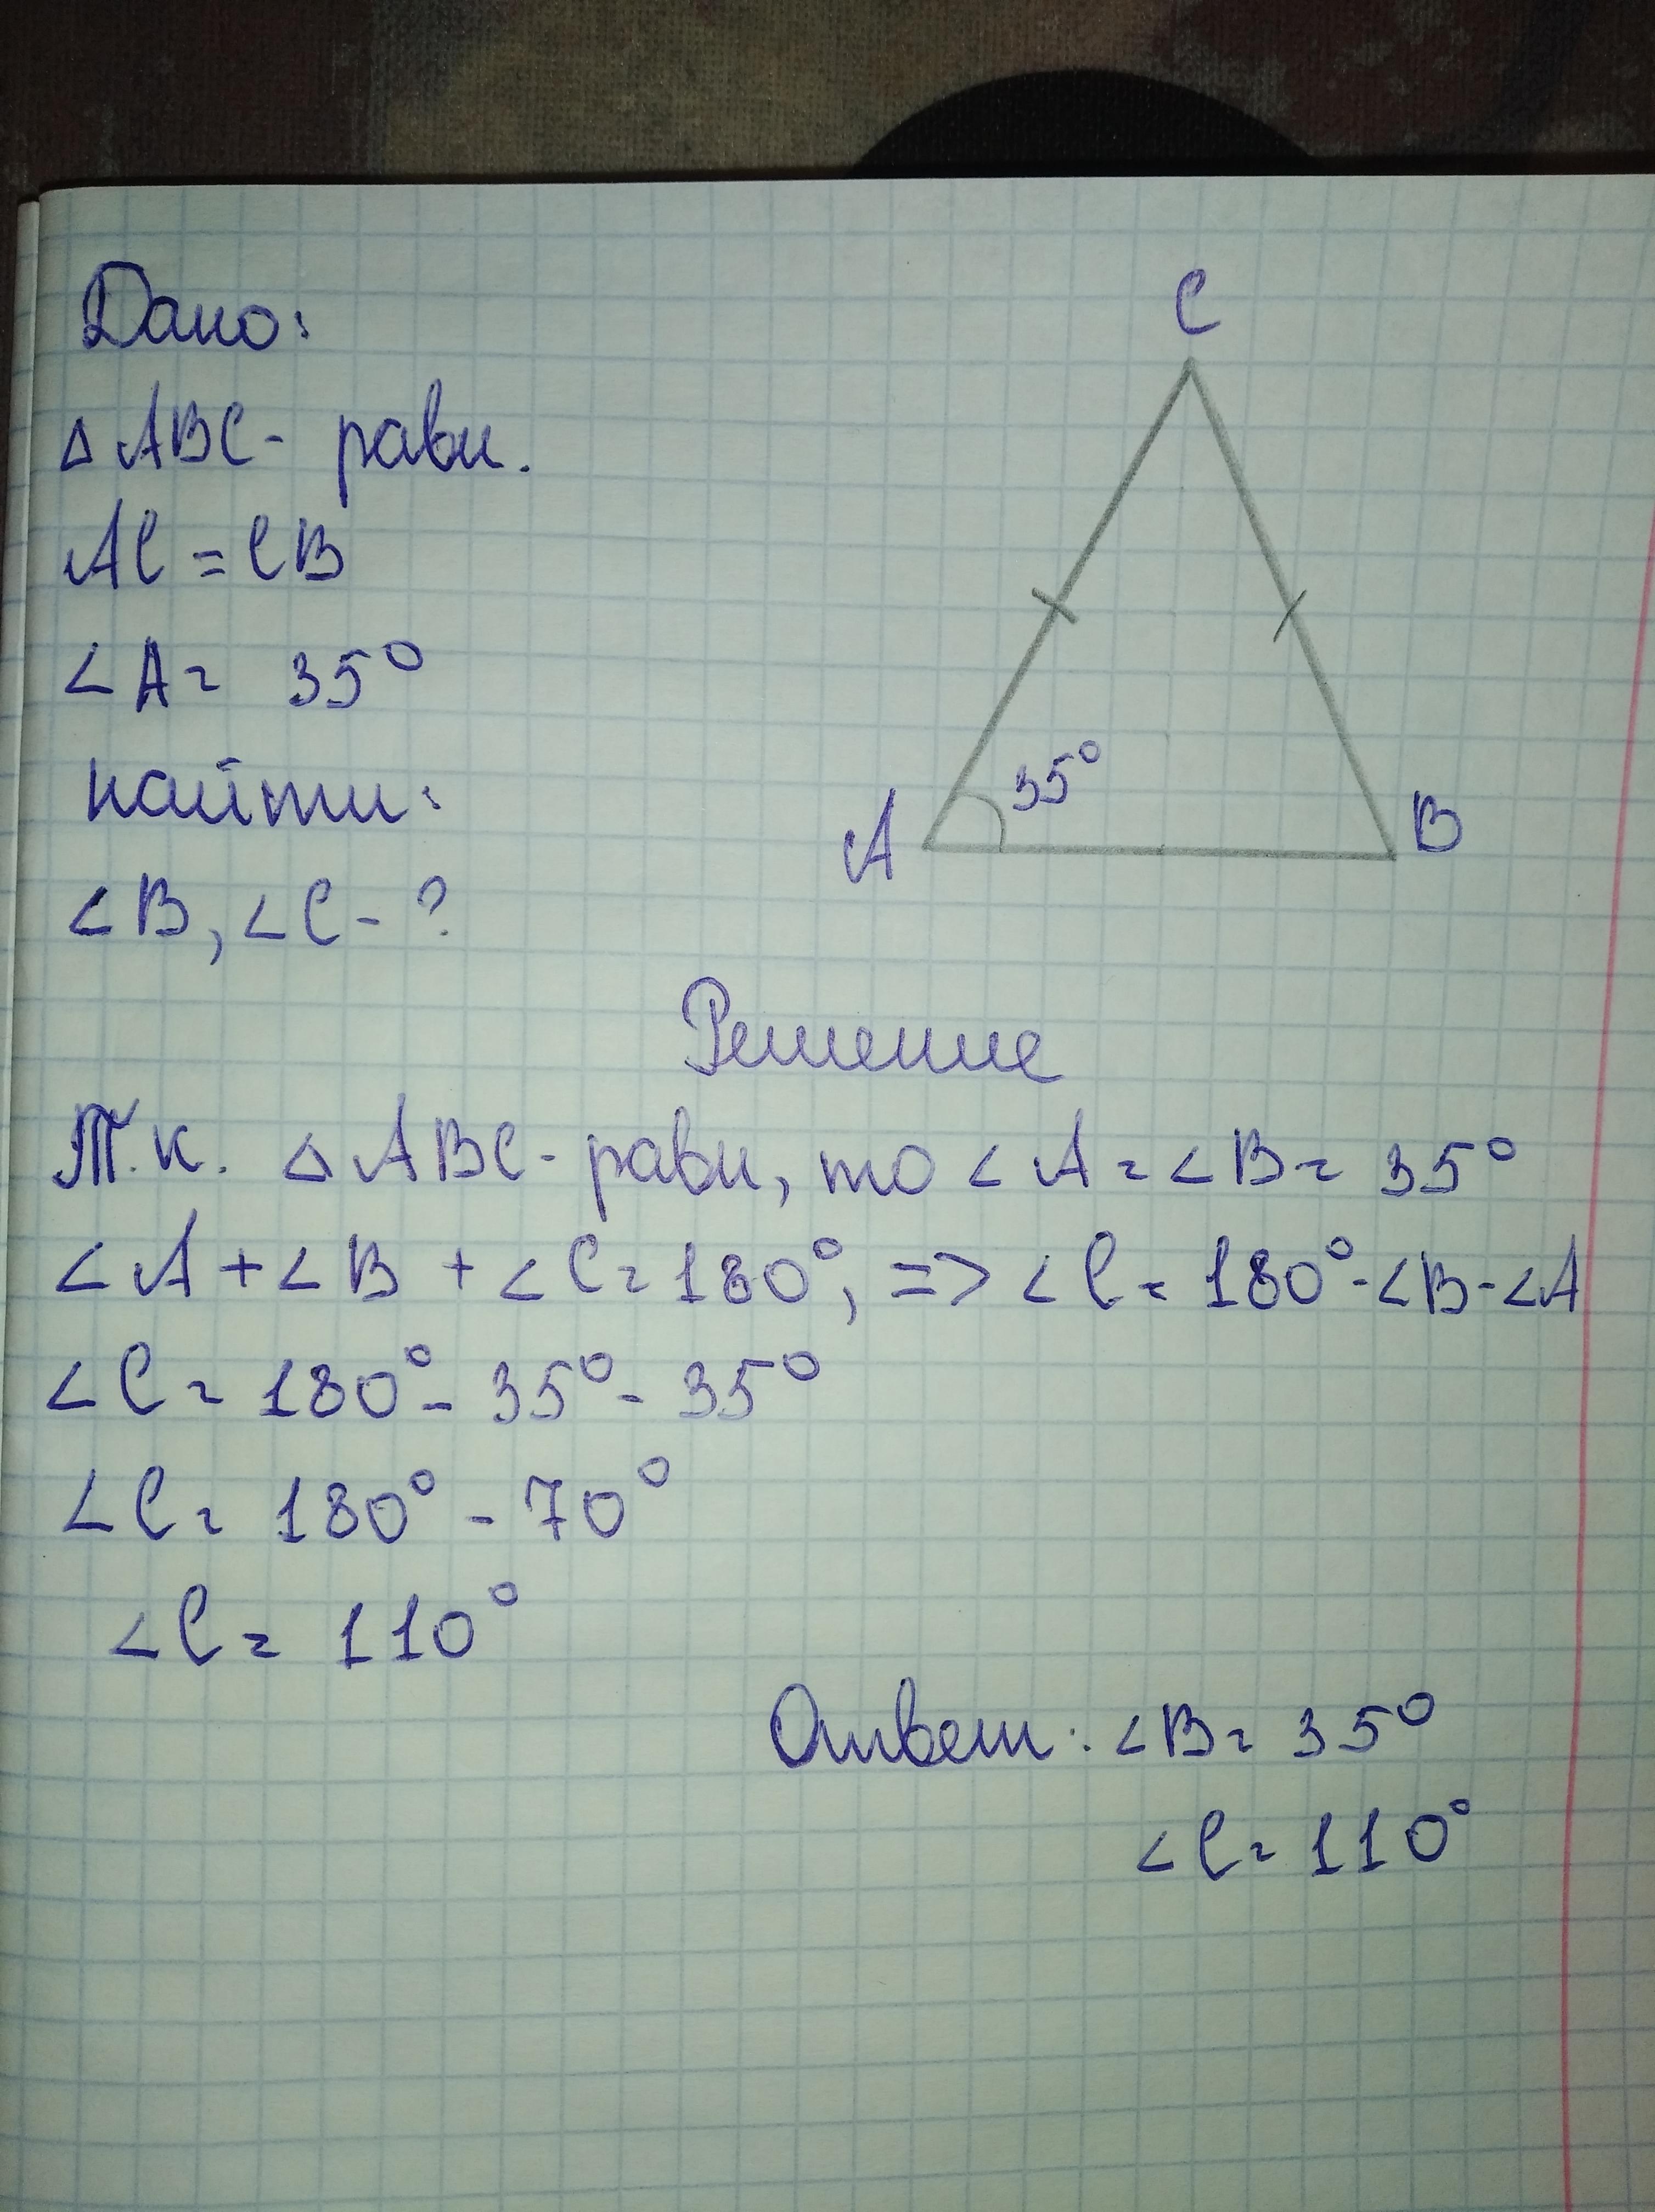 Дано:
△ABC - равн.
AC = CB
∠A = 35°
найти:
∠B, ∠C - ?
C
35°
A
B
Решение
Т.к. △ABC - равн, то ∠A = ∠B = 35°
∠A + ∠B + ∠C = 180°, => ∠C = 180° - ∠B - ∠A
∠C = 180° - 35° - 35°
∠C = 180° - 70°
∠C = 110°
Ответ: ∠B = 35°
∠C = 110°